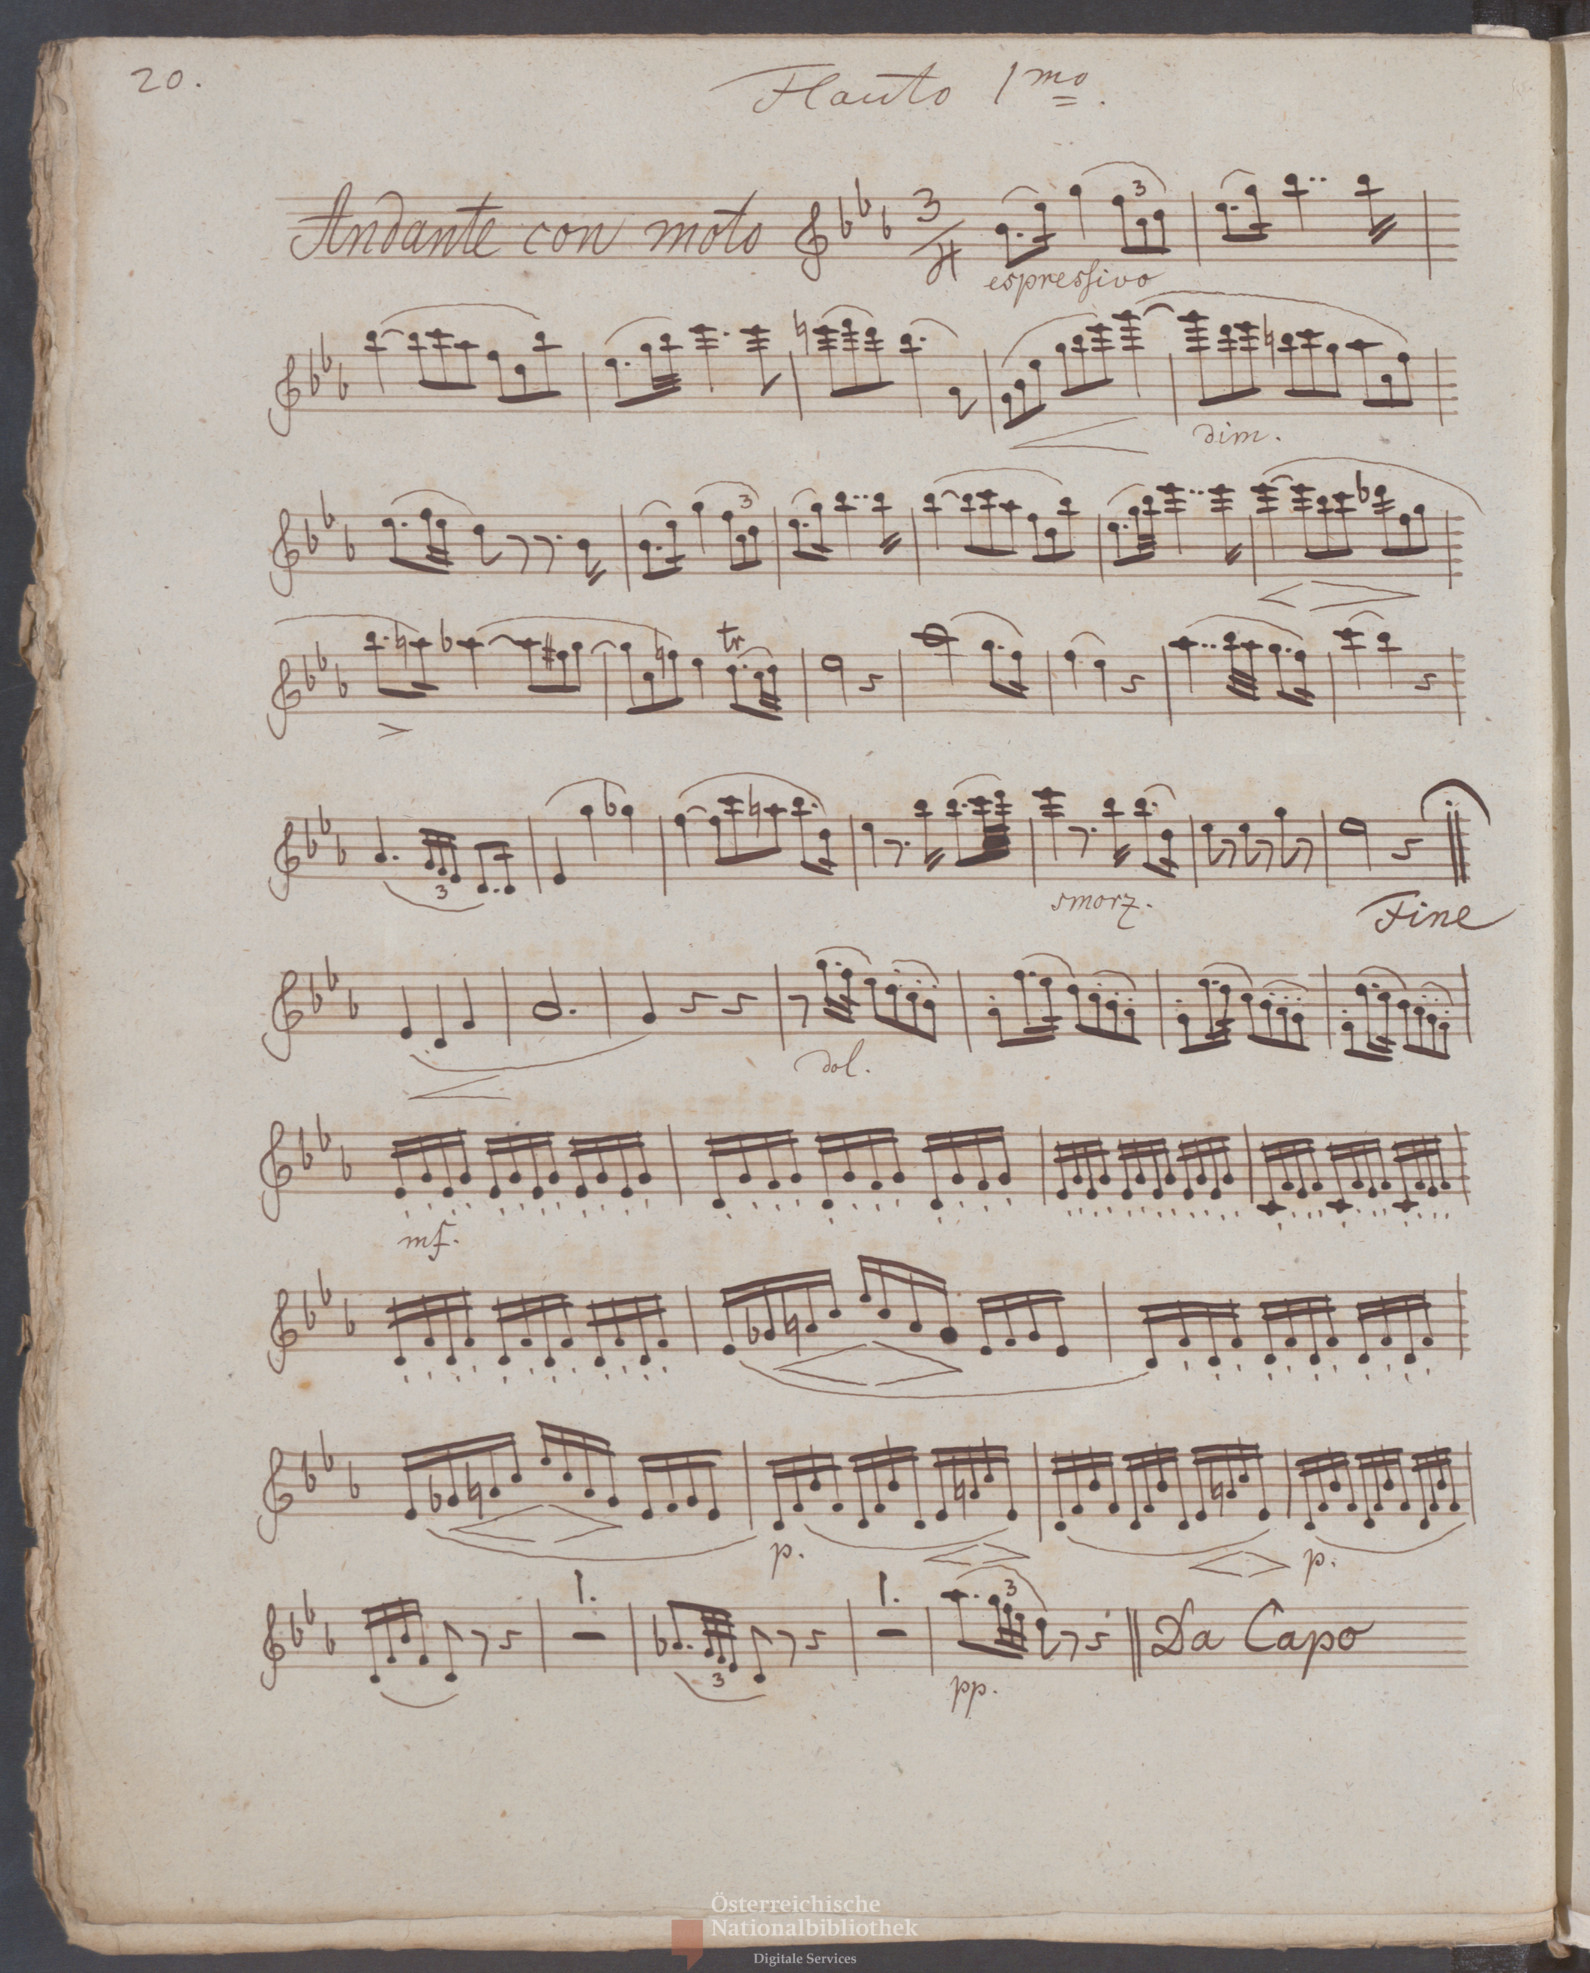 20.
Flauto 1mo.
Andante con moto 3/4
3
espressivo
dim.
3
tr
3
smorz.
Fine
dol.
mf.
p.
p.
1.
1.
3
3
pp.
Da Capo
Österreichische
Nationalbibliothek
Digitale Services